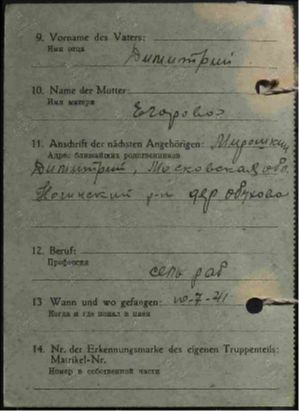 9. Vorname des Vaters:
Имя отца
Димитрий
10. Name der Mutter:
Имя матери
Егорова
11. Anschrift der nächsten Angehörigen: Мирошкин
Адрес ближайших родственников
Димитрий, Московская обл.
Ногинский р-н дер Обухово
12. Beruf:
Профессия
сель раб
13 Wann und wo gefangen: -7-41
Когда и где попал в плен
14. Nr. der Erkennungsmarke des eigenen Truppenteils:
Matrikel-Nr.
Номер в собственной части